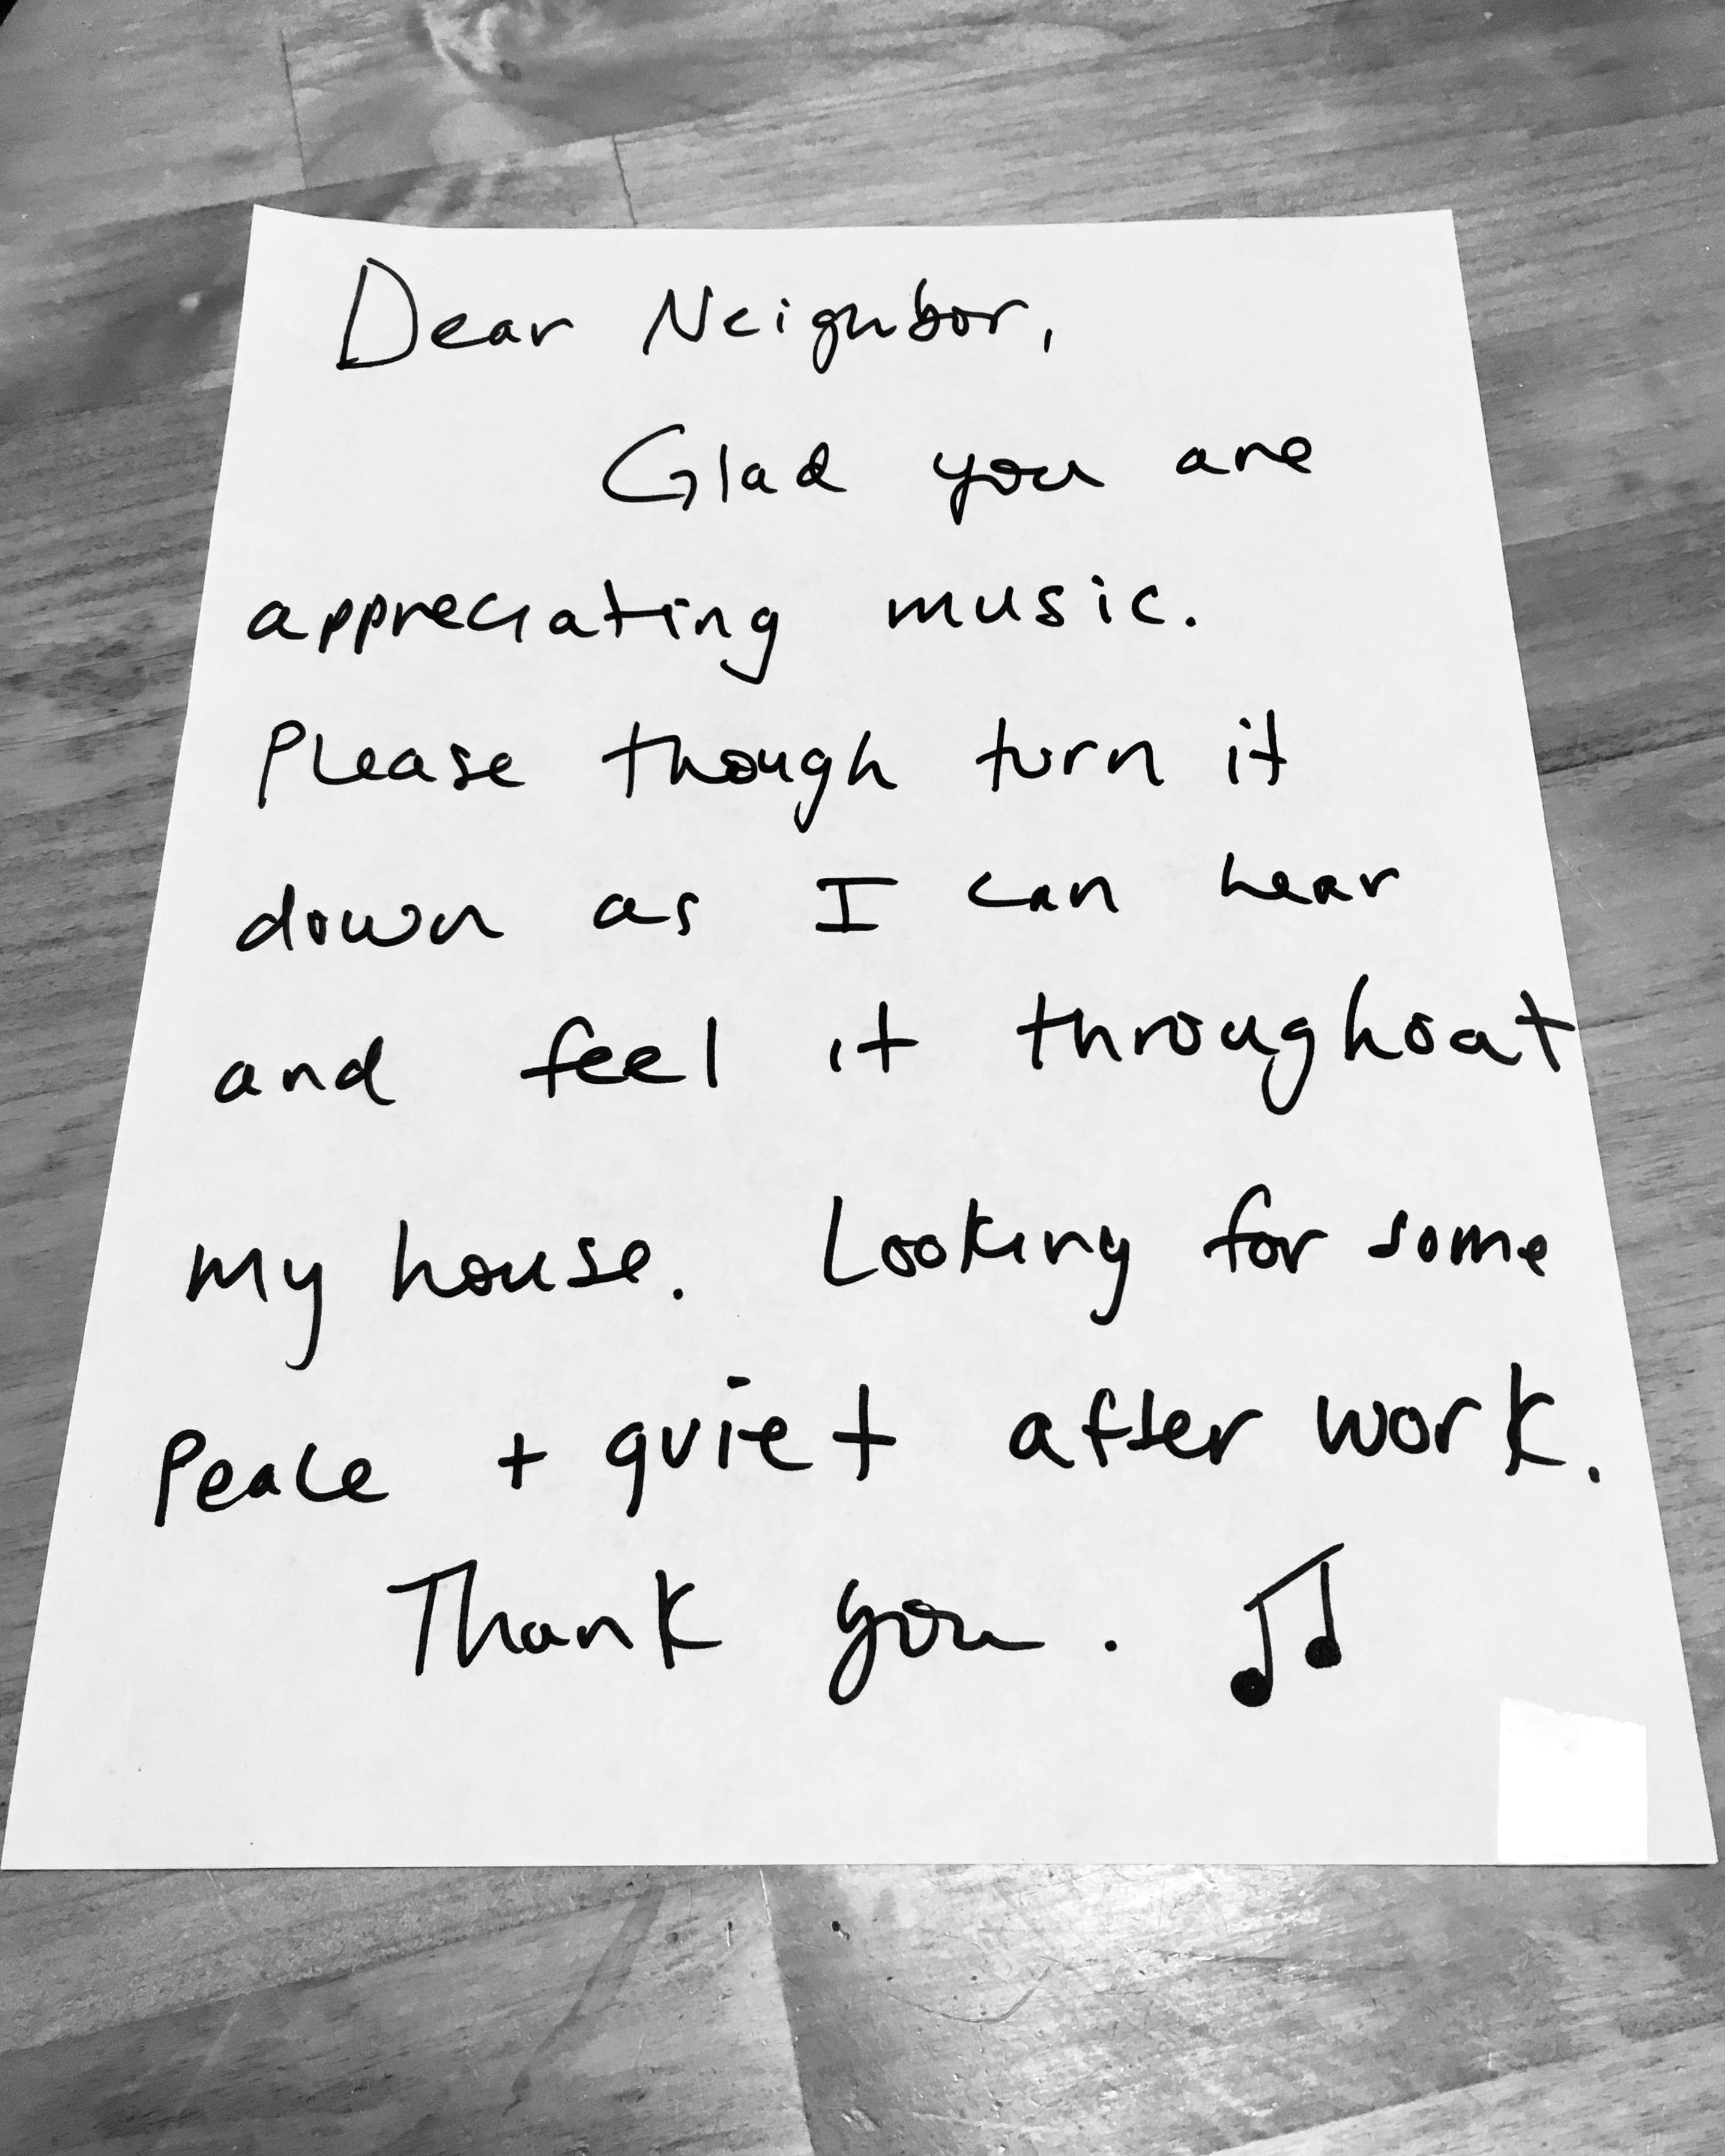 Dear Neighbor,
Glad you are
appreciating music.
Please though turn it
down as I can hear
and feel it throughout
my house. Looking for some
Peace + quiet after work.
Thank you.